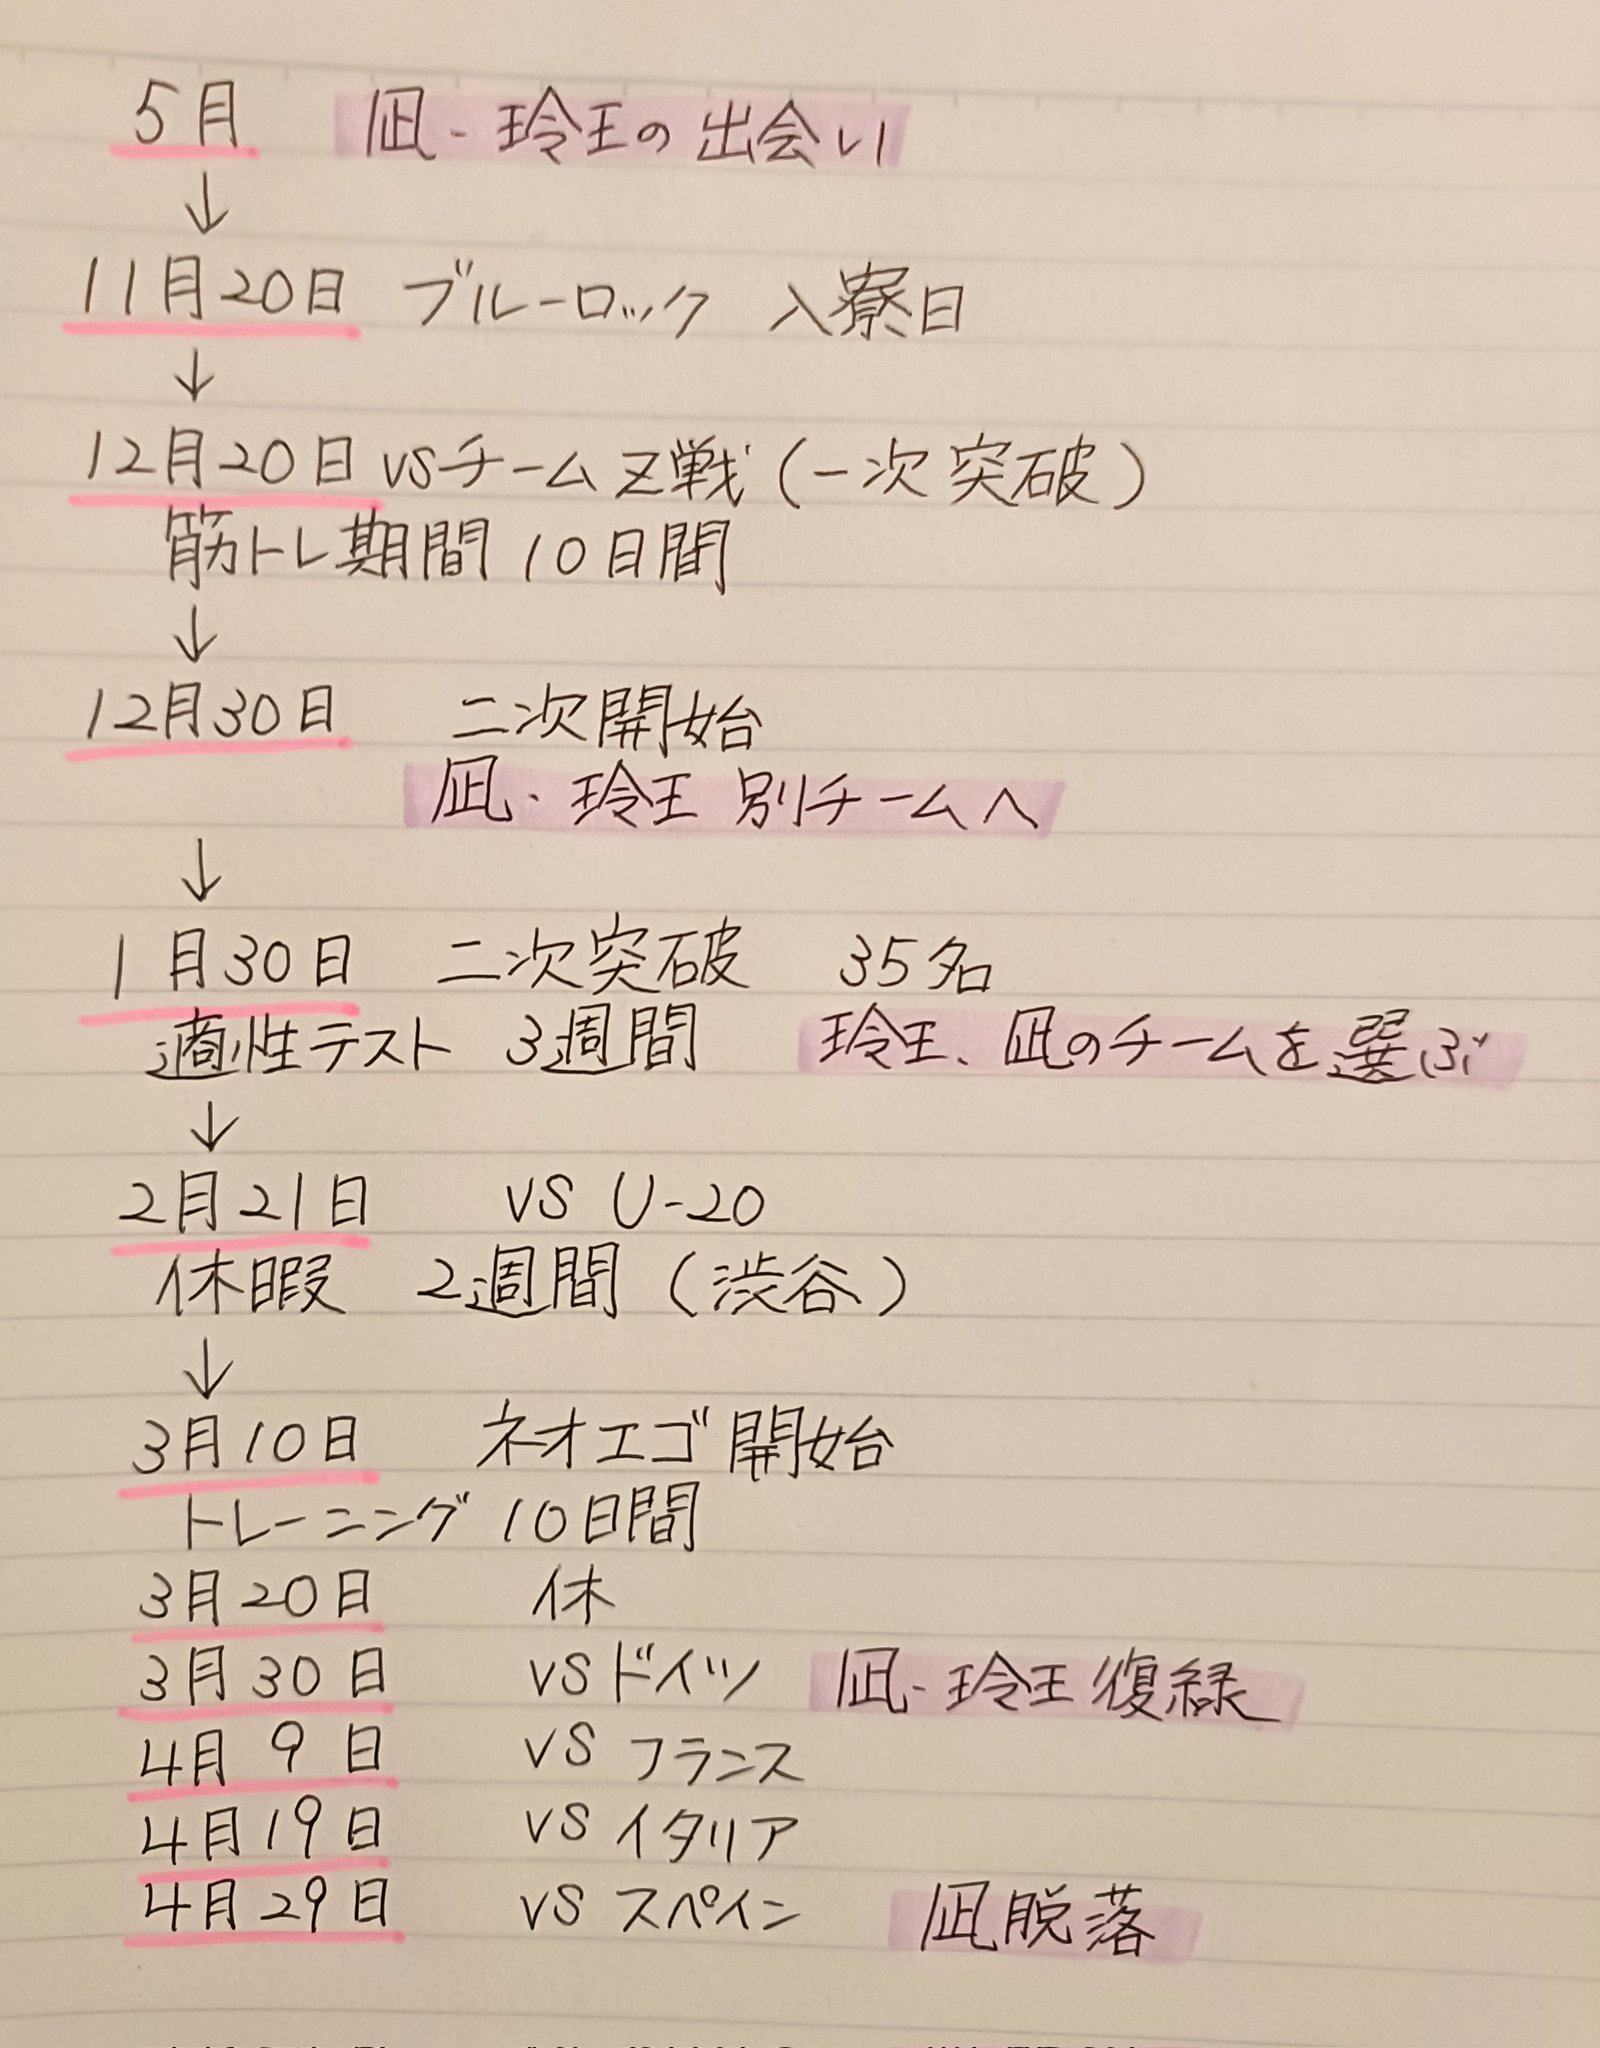 5月 凪・玲王の出会い
↓
11月20日 ブルーロック 入寮日
↓
12月20日 vsチームZ戦(一次突破)
筋トレ期間 10日間
↓
12月30日 二次開始
凪・玲王 別チームへ
↓
1月30日 二次突破 35名
適性テスト 3週間 玲王、凪のチームを選ぶ
↓
2月21日 vs U-20
休暇 2週間(渋谷)
↓
3月10日 ネオエゴ開始
トレーニング 10日間
3月20日 休
3月30日 vsドイツ 凪・玲王復縁
4月9日 vs フランス
4月19日 vs イタリア
4月29日 vs スペイン 凪脱落